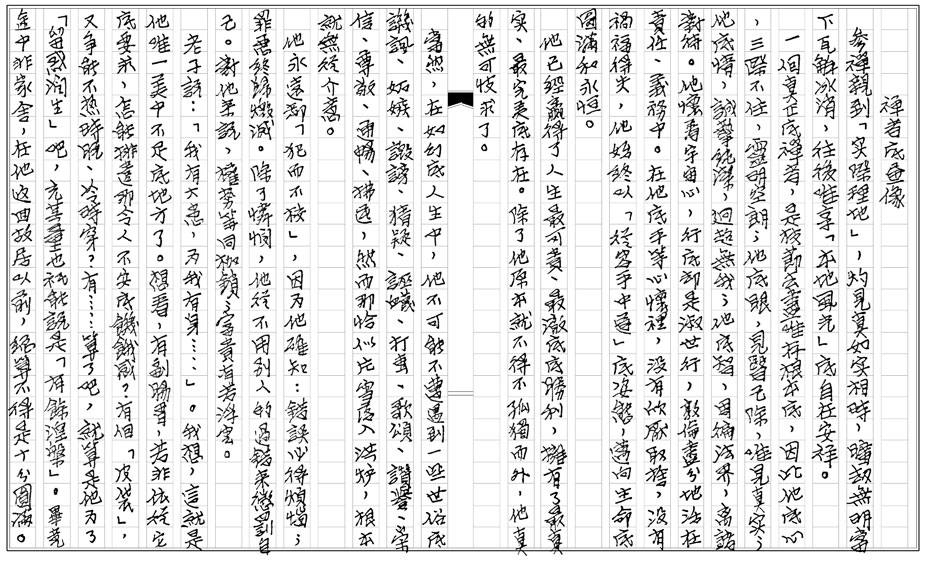 禪者底画像
參禪親到「实際理地」,灼見真如实相時,曠劫無明當
下瓦解冰消,往後唯享「本地風光」底自在安祥。
一個真正底禪者,是枝節去盡唯存根本底,因此他底心
,三際不住,靈明空朗;他底眼,見翳已除,唯見真实;
他底情,誠摯純潔,迥超無我;他底智,周徧法界,离諸
對待。他懷著宇宙心,行底却是淑世行,敦倫盡分地活在
責任、義務中。在他底平等心懷裡,没有欣厭取捨,没有
禍福得失,他始終以「從容乎中道」底姿態,邁向生命底
圓滿和永恒。
他已經贏得了人生最可貴、最澈底底勝利,擁有了最真
实、最完美底存在。除了他原本就不得不孤獨而外,他真
的無可忮求了。
當然,在如幻底人生中,他不可能不遭遇到一些世俗底
譏諷、妬嫉、譭謗、猜疑、誣衊、打擊、歌頌、讚譽、崇
信、尊敬、通暢、拂逆,然而那恰似片雪落入洪炉,根本
就無從介意。
他永遠都「犯而不校」,因为他確知:錯誤必得煩惱;
罪惡終歸燬滅。除了憐憫,他從不用别人的過錯來懲罰自
己。對他來說,權势等同枷鎖;富貴有若浮雲。
老子說:「我有大患,为我有身……」。我想,這就是
他唯一美中不足底地方了。想看,有副腸胃,若非依從它
底要求,怎能排遣那令人不安底饑餓感?有個「皮袋」,
又争能不热時脱、冷時穿?有……算了吧,就算是他为了
「留惑润生」吧,充其量也祇能說是「有餘涅槃」。畢竟
途中非家舍,在他返回故居以前,總算不得是十分圓滿。